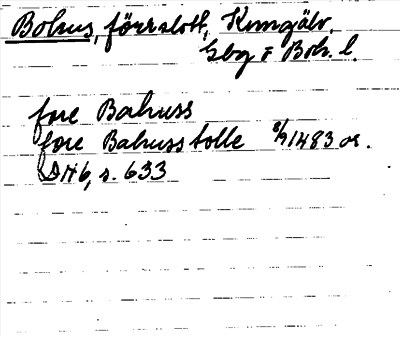 Bohus, förr slott, Kungälv.
Gbg o Boh. l.
fore Bahuss
fore Bahuss tolle 8/9 1483 or.
DN 6, s. 633